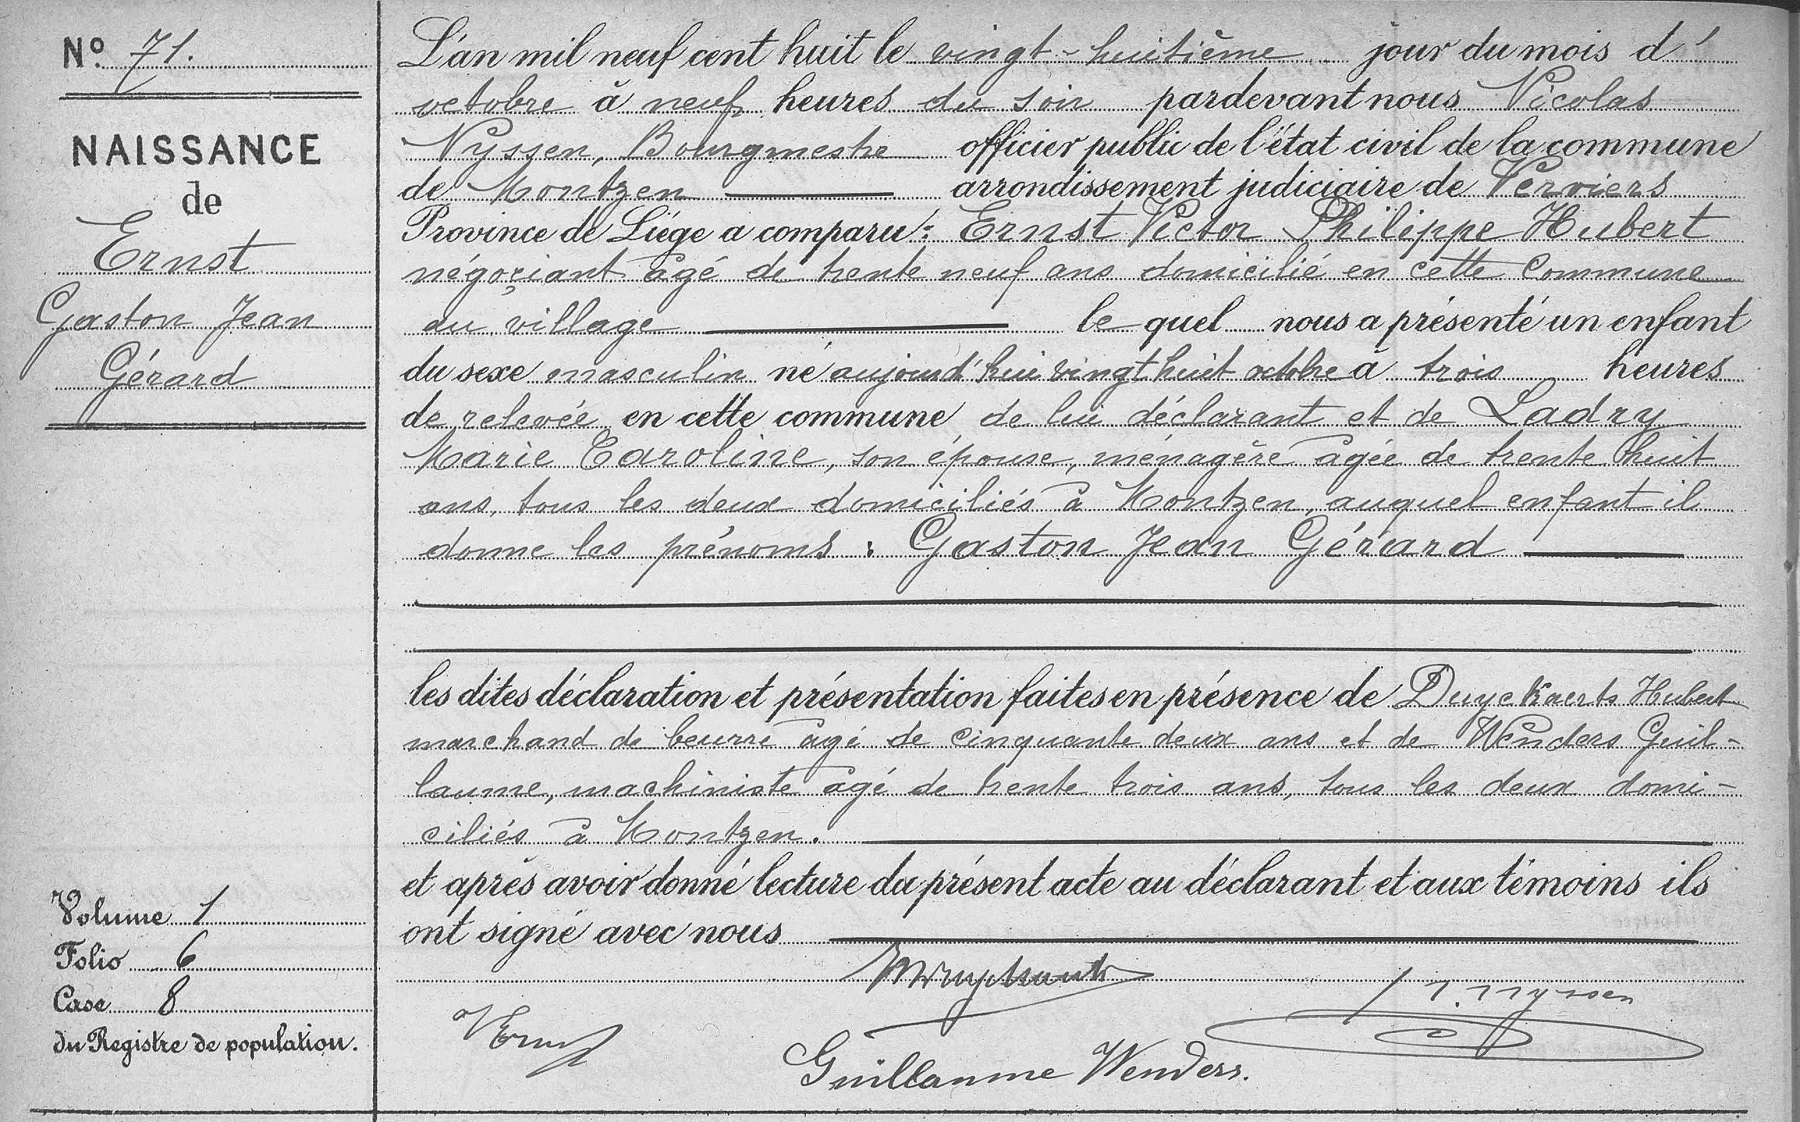 Nº 71.
NAISSANCE
de
Ernst
Gaston Jean
Gérard
Volume 1
Folio 6
Case 8
du Registre de population.
L'an mil neuf cent huit le vingt-huitième jour du mois d'
octobre à neuf heures du soir pardevant nous Nicolas
Nyssen, Bourgmestre officier public de l'état civil de la commune
de Montzen arrondissement judiciaire de Verviers
Province de Liége a comparu: Ernst Victor Philippe Hubert
négociant âgé de trente neuf ans domicilié en cette commune
au village le quel nous a présenté un enfant
du sexe masculin né aujourd'hui vingt huit octobre à trois heures
de relevée en cette commune de lui déclarant et de Ladry
Marie Caroline, son épouse, ménagère âgée de trente huit
ans, tous les deux domiciliés à Montzen, auquel enfant il
donne les prénoms : Gaston Jean Gérard
les dites déclaration et présentation faites en présence de Duyckaerts Hubert
marchand de beurre âgé de cinquante deux ans et de Wenders Guil-
laume, machiniste âgé de trente trois ans, tous les deux domi-
ciliés à Montzen.
et après avoir donné lecture du présent acte au déclarant et aux témoins ils
ont signé avec nous
N. Nyssen
VErnst
Guillaume Wenders.